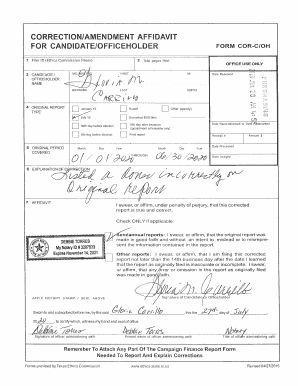 CORRECTION/AMENDMENT AFFIDAVIT
FOR CANDIDATE/OFFICEHOLDER
FORM COR-C/OH
1 Filer ID (Ethics Commission Filers)
2 Total pages filed:
OFFICE USE ONLY
3 CANDIDATE/
OFFICEHOLDER
NAME
FIRST
MI
Date Received
LAST
SUFFIX
4 ORIGINAL REPORT
TYPE
January 15
Runoff
Other (specify)
July 15
30th day before election
8th day before election
Final report
Receipt #
Amount $
Date Processed
5 ORIGINAL PERIOD
COVERED
Month Day Year
Month Day Year
Date Imaged
01/01/2020
THROUGH
06/30/2020
6 EXPLANATION OF CORRECTION
Listed a donor incorrectly on
Original report
7 AFFIDAVIT
I swear, or affirm, under penalty of perjury, that this corrected
report is true and correct.
Check ONLY if applicable:
Semiannual reports: I swear, or affirm, that the original report was
made in good faith and without an intent to mislead or to misrepre-
sent the information contained in the report.
Other reports: I swear, or affirm, that I am filing this corrected
report not later than the 14th business day after the date I learned
that the report as originally filed is inaccurate or incomplete. I swear,
or affirm, that any error or omission in the report as originally filed
was made in good faith.
DEBBIE TORRES
Expires November 14, 2021
AFFIX NOTARY STAMP / SEAL ABOVE
Signature of Candidate or Officeholder
Sworn to and subscribed before me, by the said Gloria Carrillo this the 27th day of July
20 20, to certify which, witness my hand and seal of office.
Debbie Torres Debbie Torres Notary
Signature of officer administering oath Printed name of officer administering oath Title of officer administering oath
Remember To Attach Any Part Of The Campaign Finance Report Form
Needed To Report And Explain Corrections
Forms provided by Texas Ethics Commission
www.ethics.state.tx.us